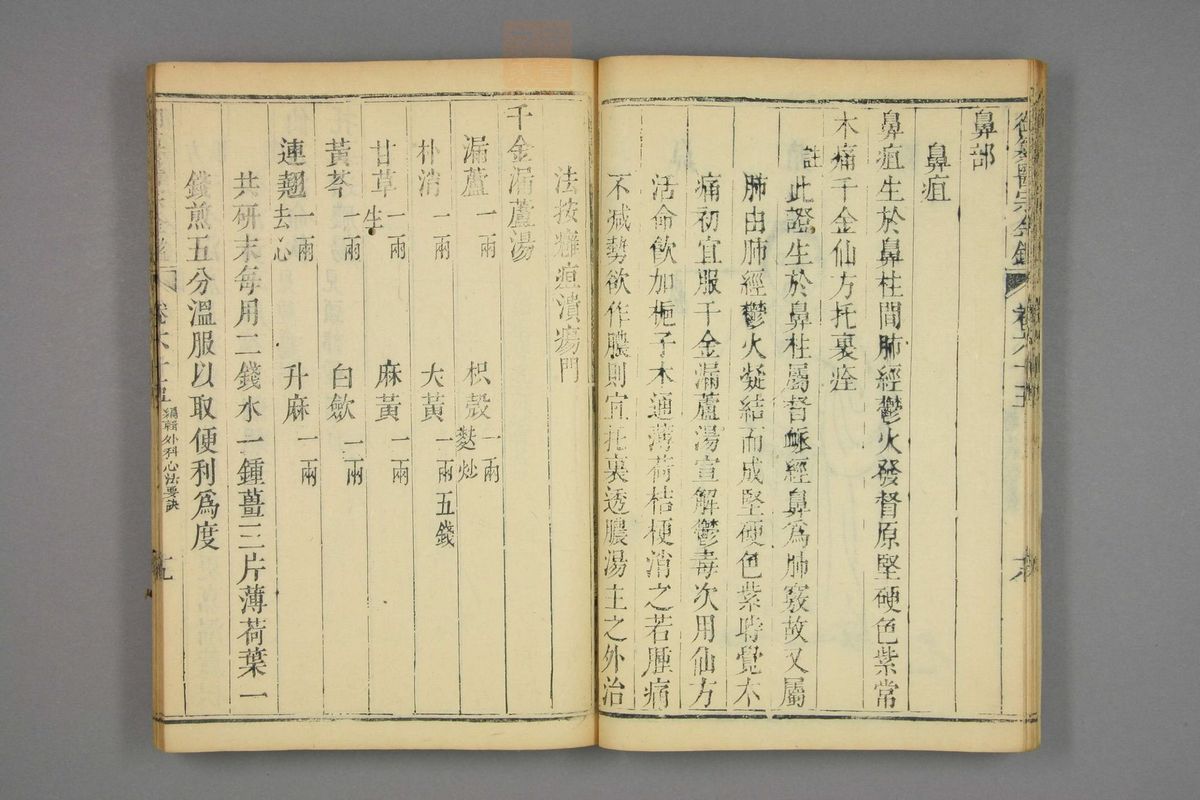 御纂醫宗金鑑 卷六十五
鼻部
鼻疽
鼻疽生於鼻柱間肺經鬱火發督原堅硬色紫常
木痛千金仙方托裏痊
註 此證生於鼻柱屬督脈經鼻爲肺竅故又屬
肺由肺經鬱火凝結而成堅硬色紫時覺木
痛初宜服千金漏蘆湯宣解鬱毒次用仙方
活命飲加梔子木通薄荷桔梗消之若腫痛
不減勢欲作膿則宜托裏透膿湯主之外治
法按癰疽潰瘍門
千金漏蘆湯
漏蘆一兩 枳殼一兩麩炒
朴消一兩 大黃一兩五錢
甘草一兩生 麻黃一兩
黃芩一兩 白歛一兩
連翹一兩去心 升麻一兩
共研末每用二錢水一鍾薑三片薄荷葉一
錢煎五分溫服以取便利爲度
卷六十五 編輯外科心法要訣 九